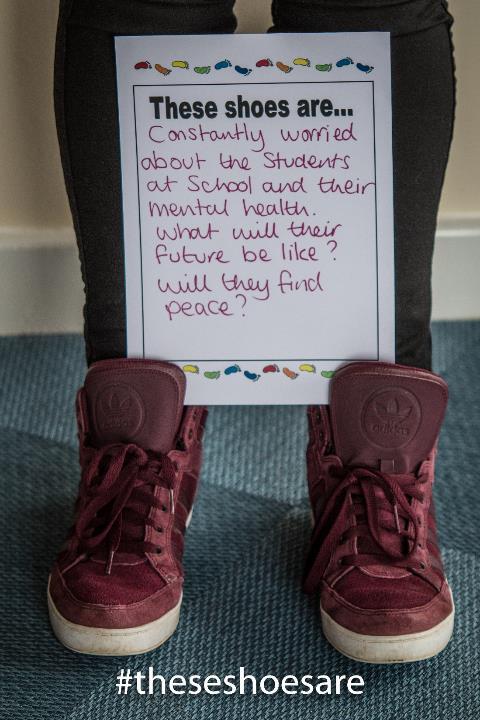 These shoes are...
Constantly worried
about the Students
at School and their
mental health.
What will their
future be like?
will they find
peace?
adidas
adidas
#theseshoesare